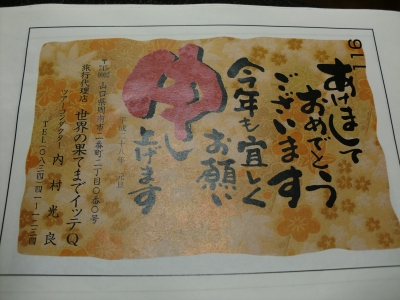 116
あけまして
おめでとう
ございます
今年も宜しく
お願い
申し
上げます
平成二十八年 元旦
山口県周南市二番町二丁目〇番〇号
旅行代理店 世界の果てまでイッテQ
ツアーコンダクター 内村光良